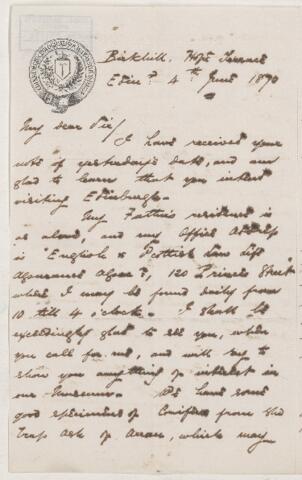 Birkhill, Hope Terrace
Edinr. 4th June 1870
My dear Sir/
I have received your
note of yesterday's date, and am
glad to learn that you intend
visiting Edinburgh.
My Father's residence is
as above, and my Office Address
is "English & Scottish Law Life
Assurance Assocn, 120 Princes Street
where I may be found daily from
10 till 4 o'clock. I shall be
exceedingly glad to see you, when
you call for me, and will try to
show you anything of interest in
our Museum. We have some
good specimens of Conifers from the
Trap Ash of Arran, which may